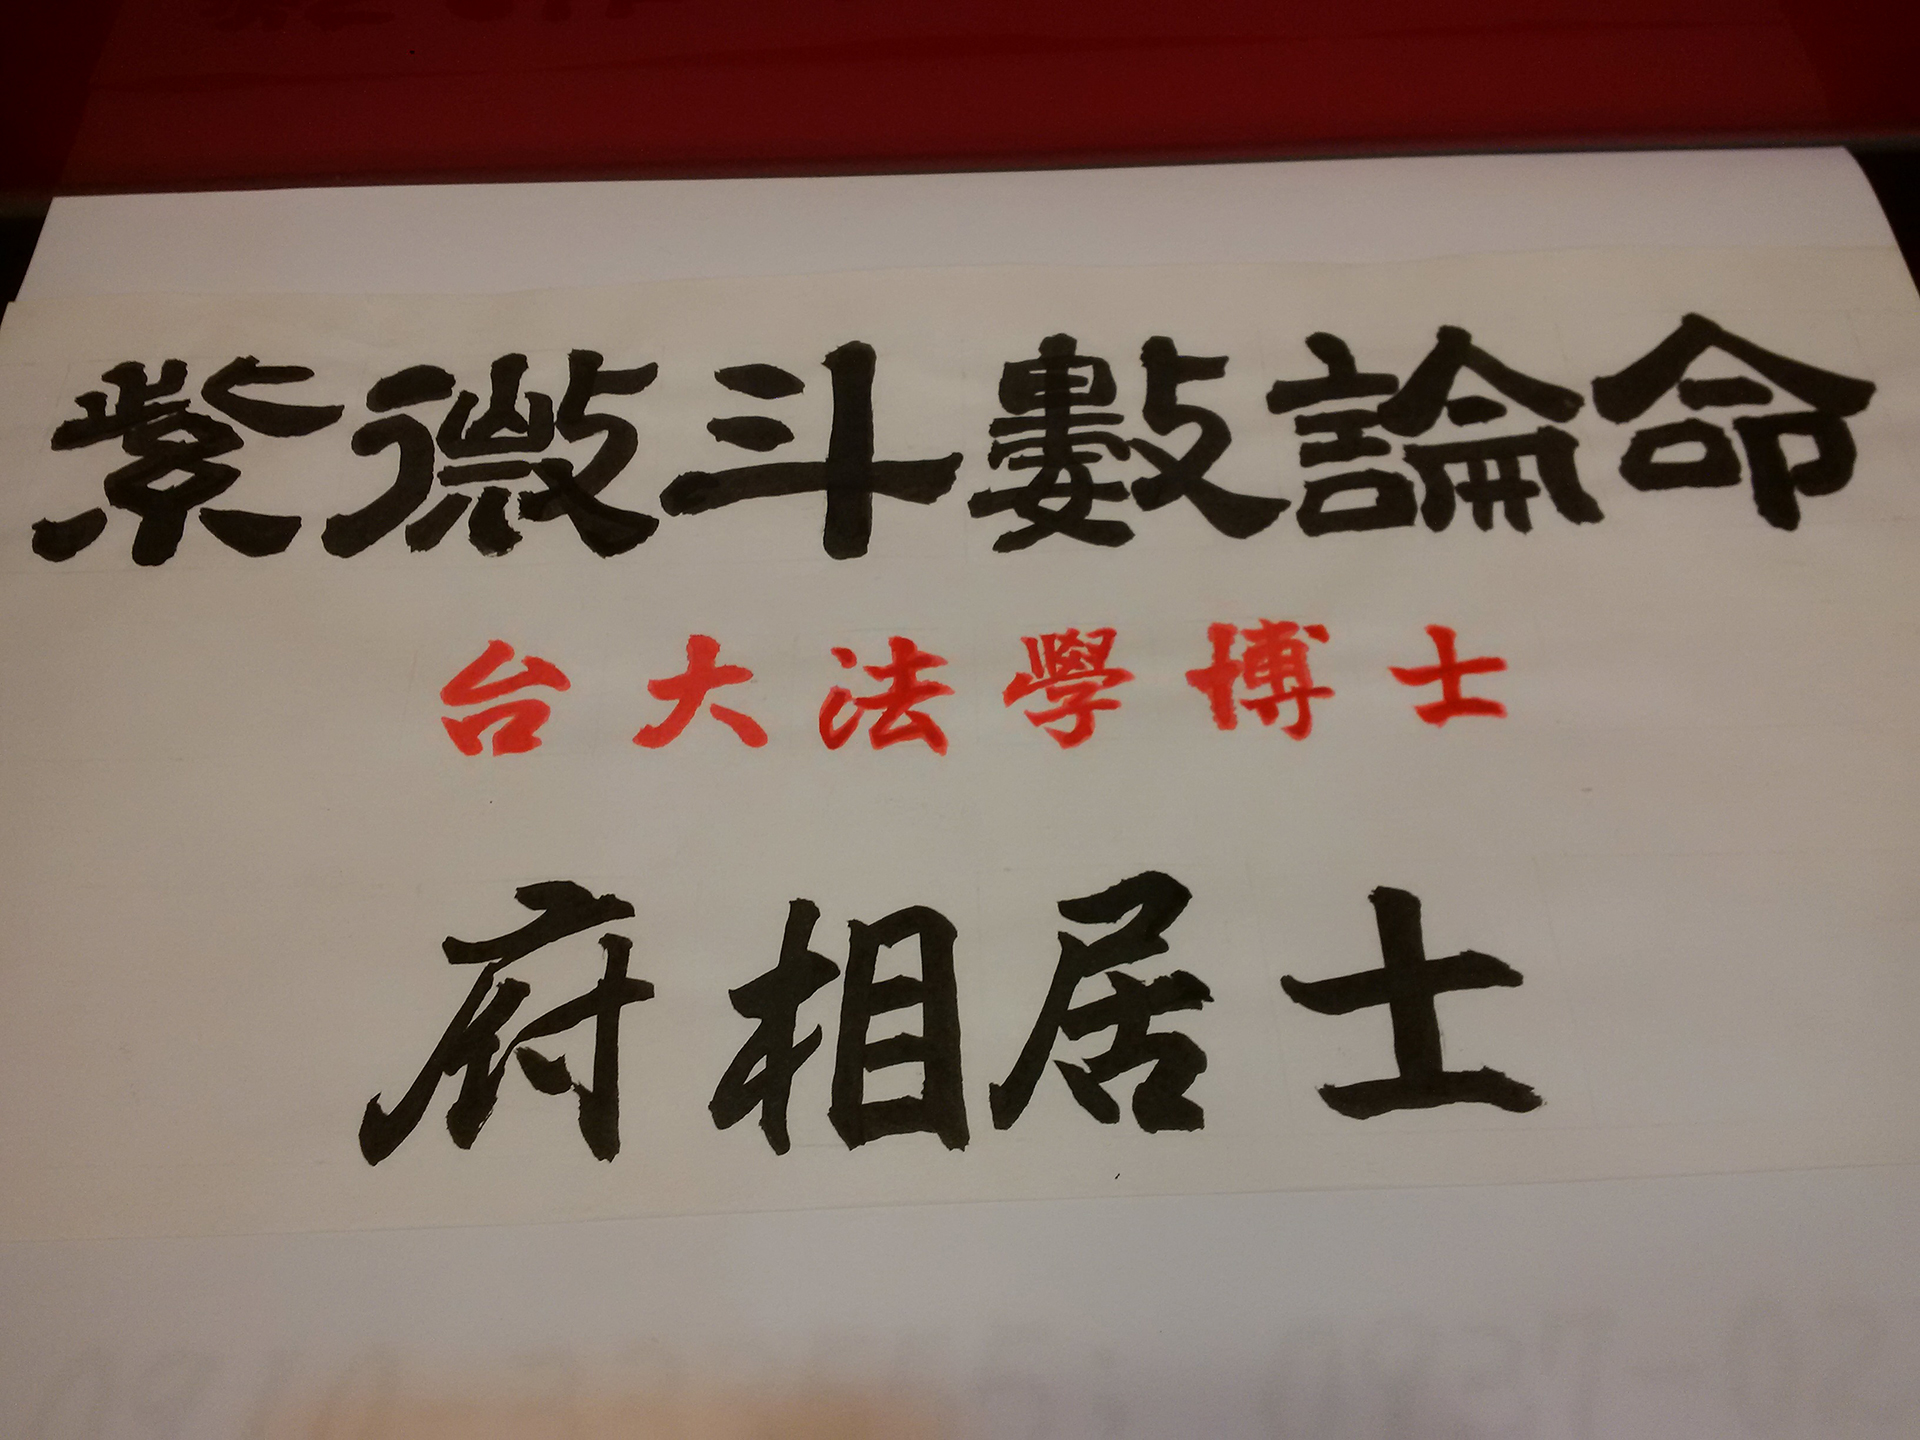 紫微斗數論命
台大法學博士
府相居士